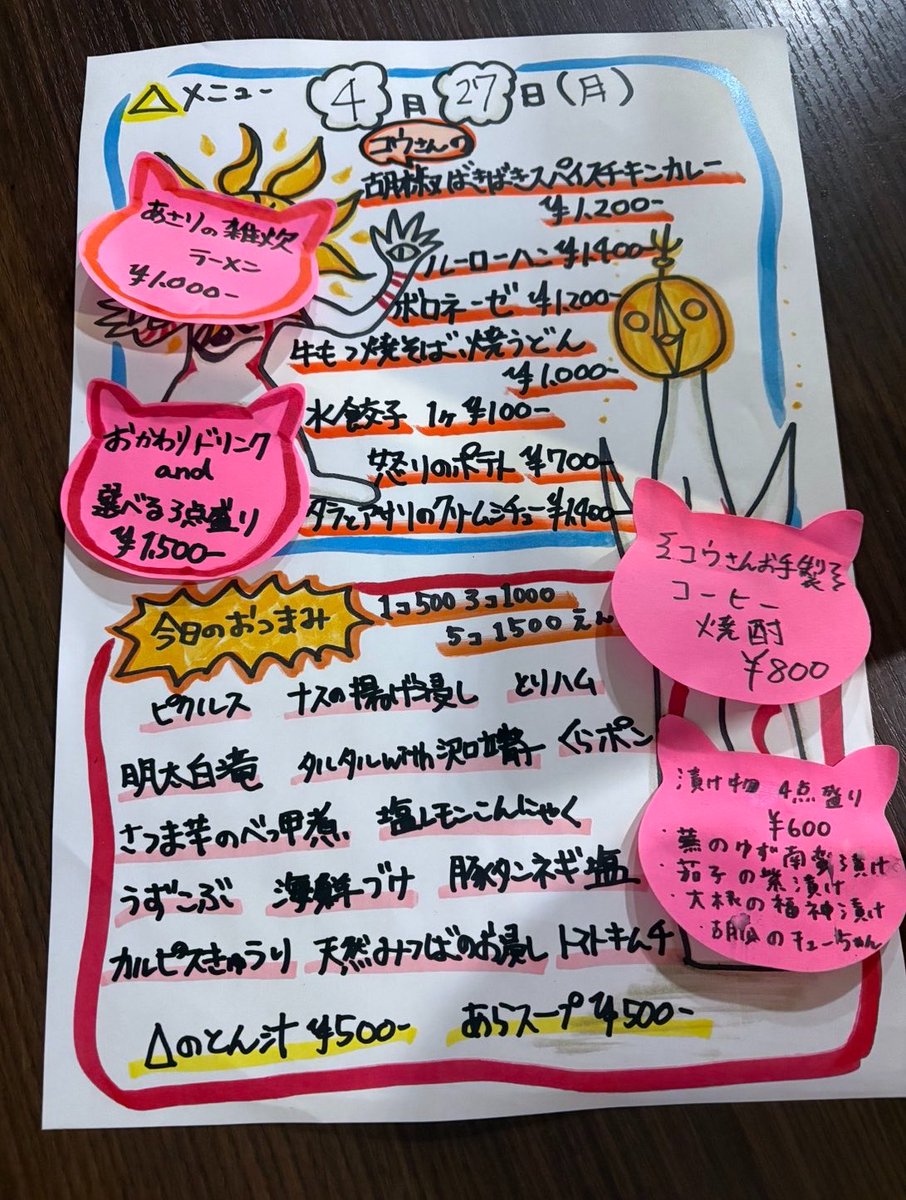 △メニュー 4月27日(月)
コウさんの
胡椒ばきばきスパイスチキンカレー
¥1,200-
あさりの雑炊
ラーメン
¥1.000-
ルーローハン ¥1,400-
ボロネーゼ ¥1,200-
牛もつ焼そば、焼うどん
¥1.000-
水餃子 1ヶ¥100-
怒りのポテト ¥700-
タラとアサリのクリームシチュー¥1,400-
おかわりドリンク
and
選べる3点盛り
¥1,500-
ミコウさんお手製ミ
コーヒー
焼酎
¥800
今日のおつまみ
1コ500 3コ1000
5コ1500えん
ピクルス ナスの揚げ浸し とりハム
明太白滝 タルタルwith沢口靖子 くらポン
さつま芋のべっ甲煮 塩レモンこんにゃく
うずこぶ 海鮮づけ 豚タンネギ塩
カルピスきゅうり 天然みつばのお浸し トマトキムチ
△のとん汁 ¥500- あらスープ ¥500-
漬け物 4点盛り
¥600
・蕪のゆず南蛮漬け
・茄子の紫漬け
・大根の福神漬け
・胡瓜のキューちゃん